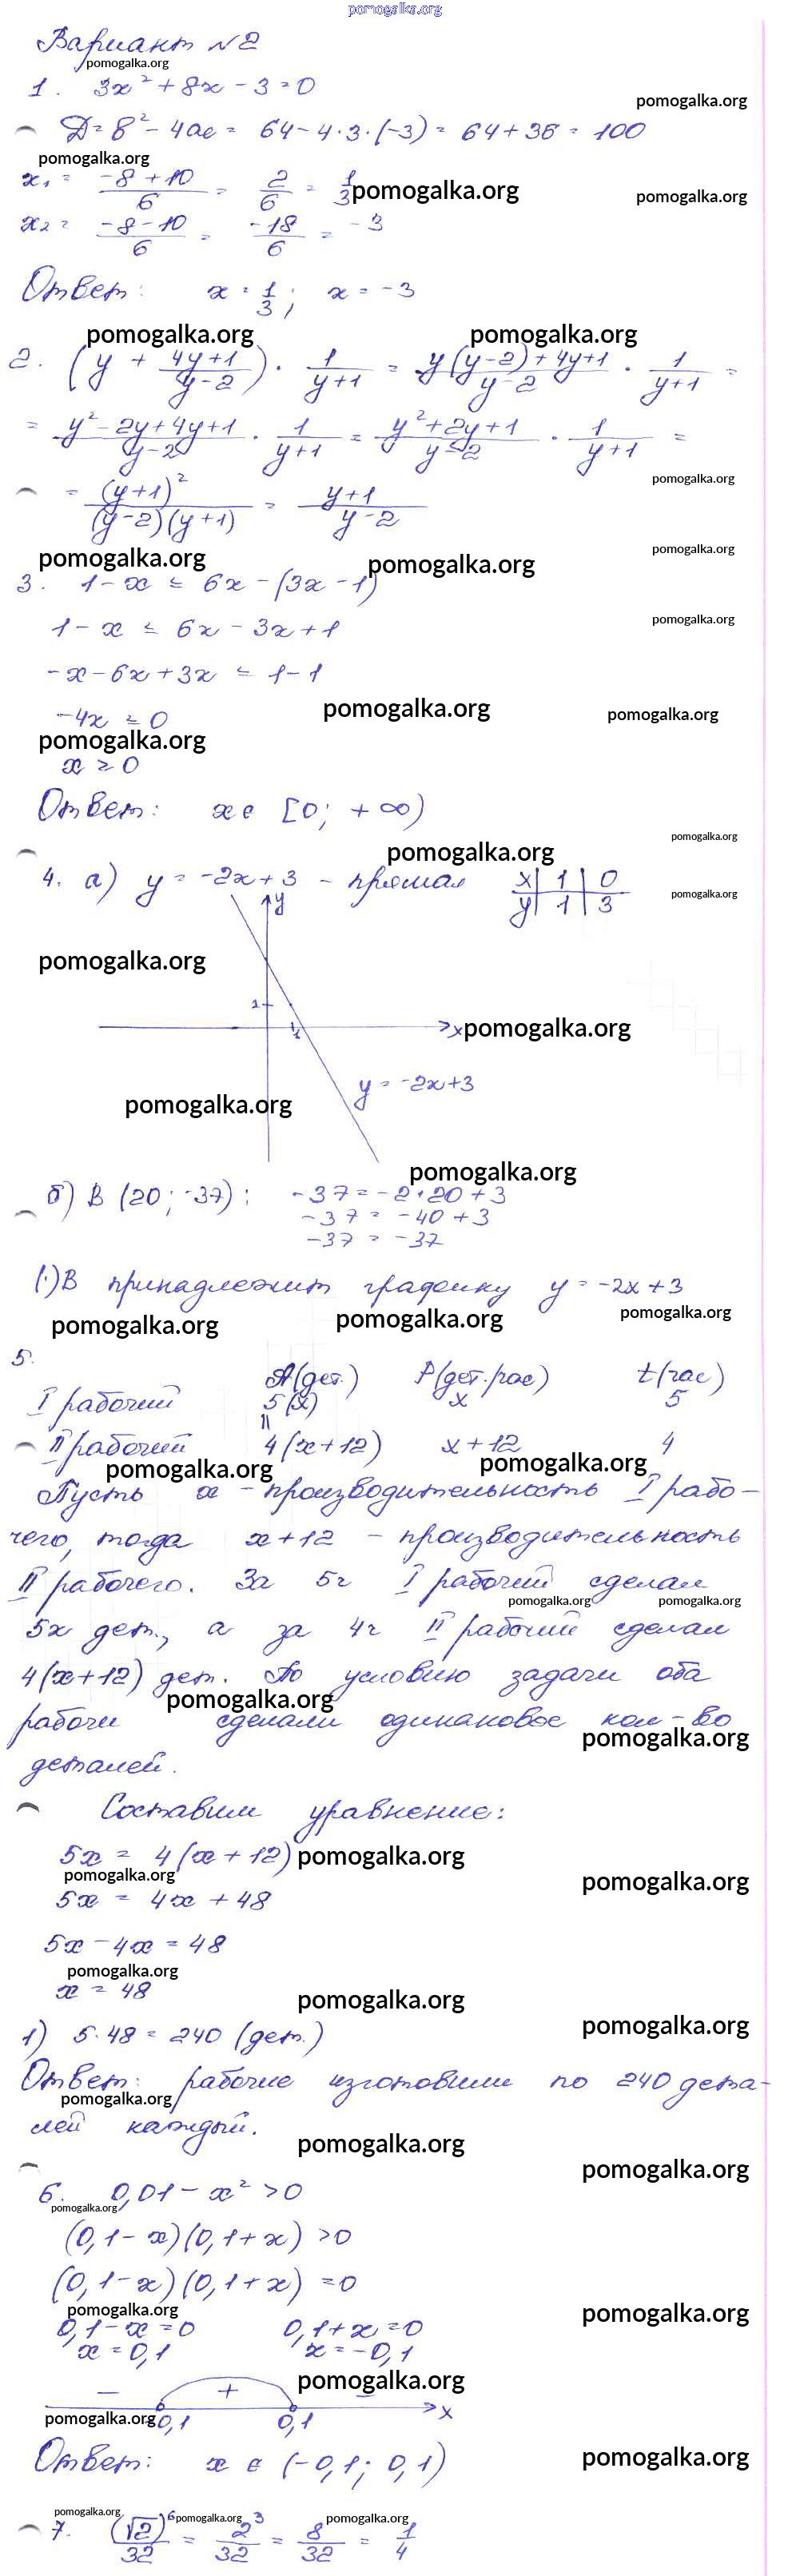 pomogalka.org
Вариант №2
pomogalka.org
1. 3x² + 8x - 3 = 0
pomogalka.org
Д = 8² - 4ac = 64 - 4·3·(-3) = 64 + 36 = 100
pomogalka.org
x₁ = (-8+10)/6 = 2/6 = 1/3
pomogalka.org
pomogalka.org
x₂ = (-8-10)/6 = -18/6 = -3
Ответ: x = 1/3; x = -3
pomogalka.org pomogalka.org
2. (y + (4y+1)/(y-2)) · 1/(y+1) = (y(y-2)+4y+1)/(y-2) · 1/(y+1) =
= (y²-2y+4y+1)/(y-2) · 1/(y+1) = (y²+2y+1)/(y-2) · 1/(y+1) =
pomogalka.org
= (y+1)²/((y-2)(y+1)) = (y+1)/(y-2)
pomogalka.org
pomogalka.org pomogalka.org
3. 1 - x ≤ 6x - (3x - 1)
1 - x ≤ 6x - 3x + 1
pomogalka.org
-x - 6x + 3x ≤ 1 - 1
-4x ≤ 0
pomogalka.org pomogalka.org
pomogalka.org
x ≥ 0
Ответ: x ∈ [0; +∞)
pomogalka.org
pomogalka.org
4. а) y = -2x + 3 - прямая
x | 1 | 0
y | 1 | 3
pomogalka.org
y
pomogalka.org
1
1
x
pomogalka.org
y = -2x+3
pomogalka.org
pomogalka.org
б) В (20; -37): -37 = -2·20 + 3
-37 = -40 + 3
-37 = -37
(·)В принадлежит графику y = -2x + 3
pomogalka.org pomogalka.org pomogalka.org
5.
A(дет.) P(дет.рас) t(час)
I рабочий 5(x) x 5
II
II рабочий 4(x+12) x+12 4
pomogalka.org pomogalka.org
Пусть x - производительность I рабо-
чего, тогда x+12 - производительность
II рабочего. За 5ч I рабочий сделал
pomogalka.org pomogalka.org
5x дет., а за 4ч II рабочий сделал
4(x+12) дет. По условию задачи оба
pomogalka.org
рабочи сделали одинаковое кол-во
pomogalka.org
деталей.
Составим уравнение:
5x = 4(x+12)
pomogalka.org
pomogalka.org
pomogalka.org
5x = 4x + 48
5x - 4x = 48
pomogalka.org
x = 48
pomogalka.org
pomogalka.org
1) 5·48 = 240 (дет.)
Ответ: рабочие изготовили по 240 дета-
pomogalka.org
лей каждый.
pomogalka.org
pomogalka.org
6. 0,01 - x² > 0
pomogalka.org
(0,1-x)(0,1+x) > 0
(0,1-x)(0,1+x) = 0
pomogalka.org
pomogalka.org
0,1-x=0 0,1+x=0
x=0,1 x=-0,1
pomogalka.org
- + -
x
pomogalka.org
-0,1 0,1
Ответ: x ∈ (-0,1; 0,1)
pomogalka.org
pomogalka.org pomogalka.org pomogalka.org
7. (√2)⁶/32 = 2³/32 = 8/32 = 1/4